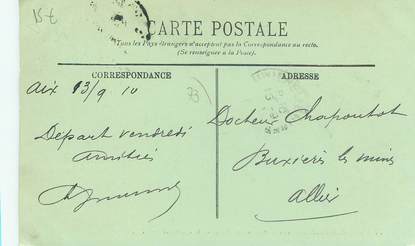 15 €
CARTE POSTALE
Tous les Pays étrangers n'acceptent pas la Correspondance au recto.
(Se renseigner à la Poste).
CORRESPONDANCE
Aix 13/9 10
Départ vendredi
Amitiés
ADRESSE
Docteur Chapoutot
Buxières les mines
Allier